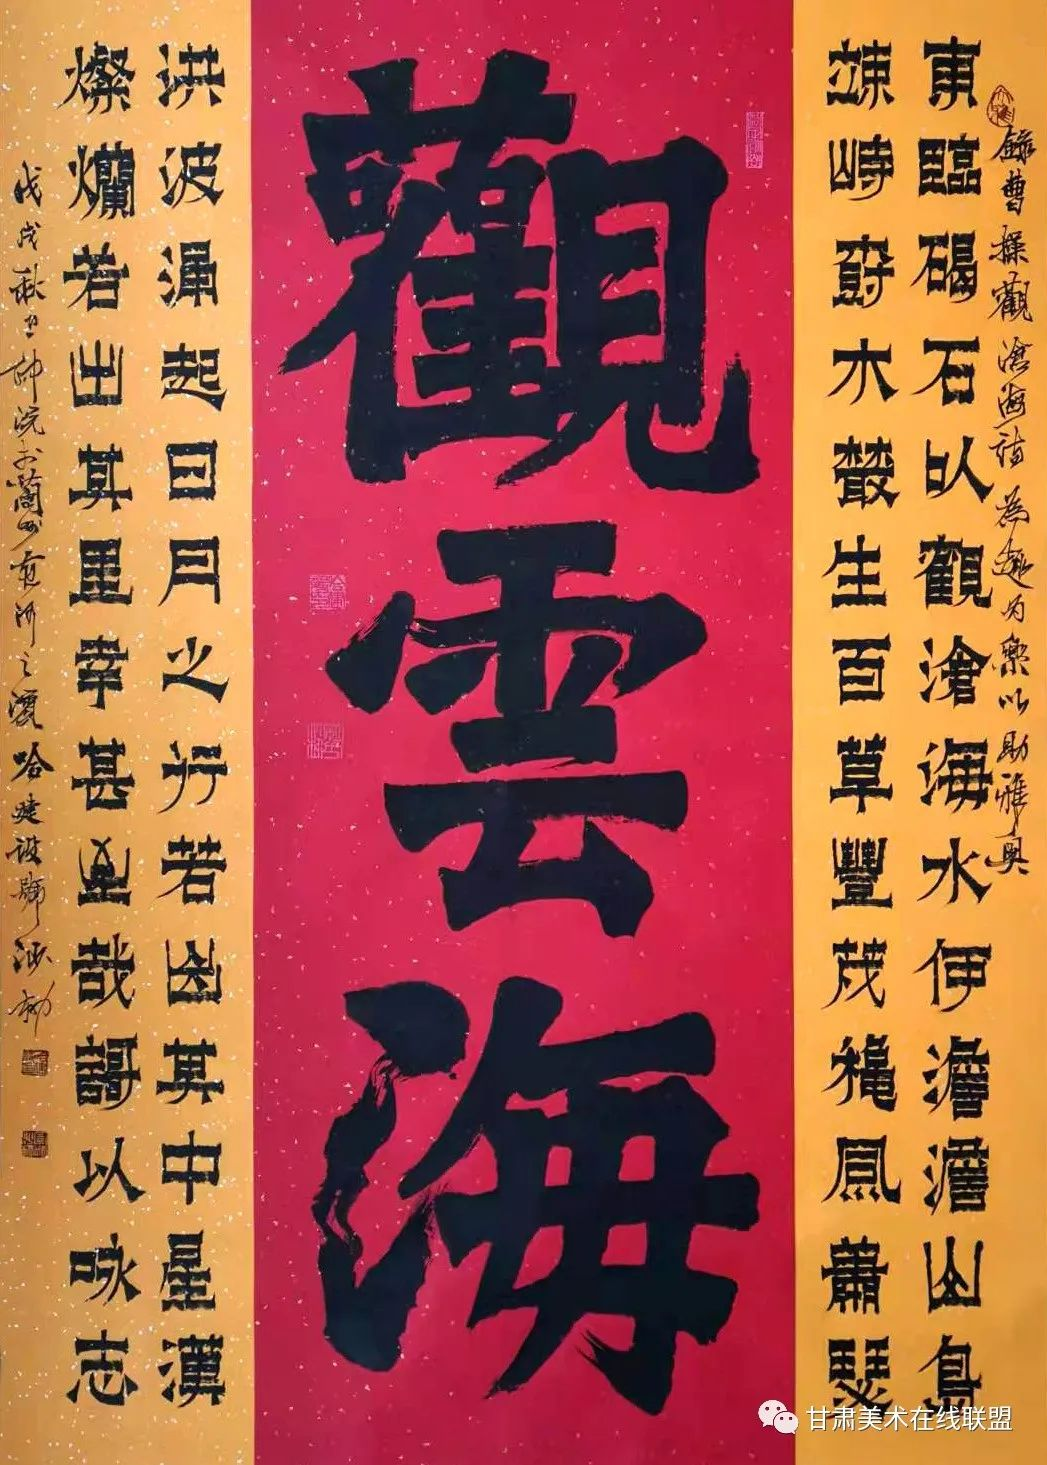 錄曹操觀滄海詩為趣為樂以助雅興
東臨碣石以觀滄海水伊澹澹山島
竦峙尌木叢生百草豐茂穐風蕭瑟
觀雲海
洪波涌起日月之行若出其中星漢
燦爛若出其里幸甚至哉謌以咏志
戊戌秋月於蘭州黃河之濱哈建設
甘肃美术在线联盟